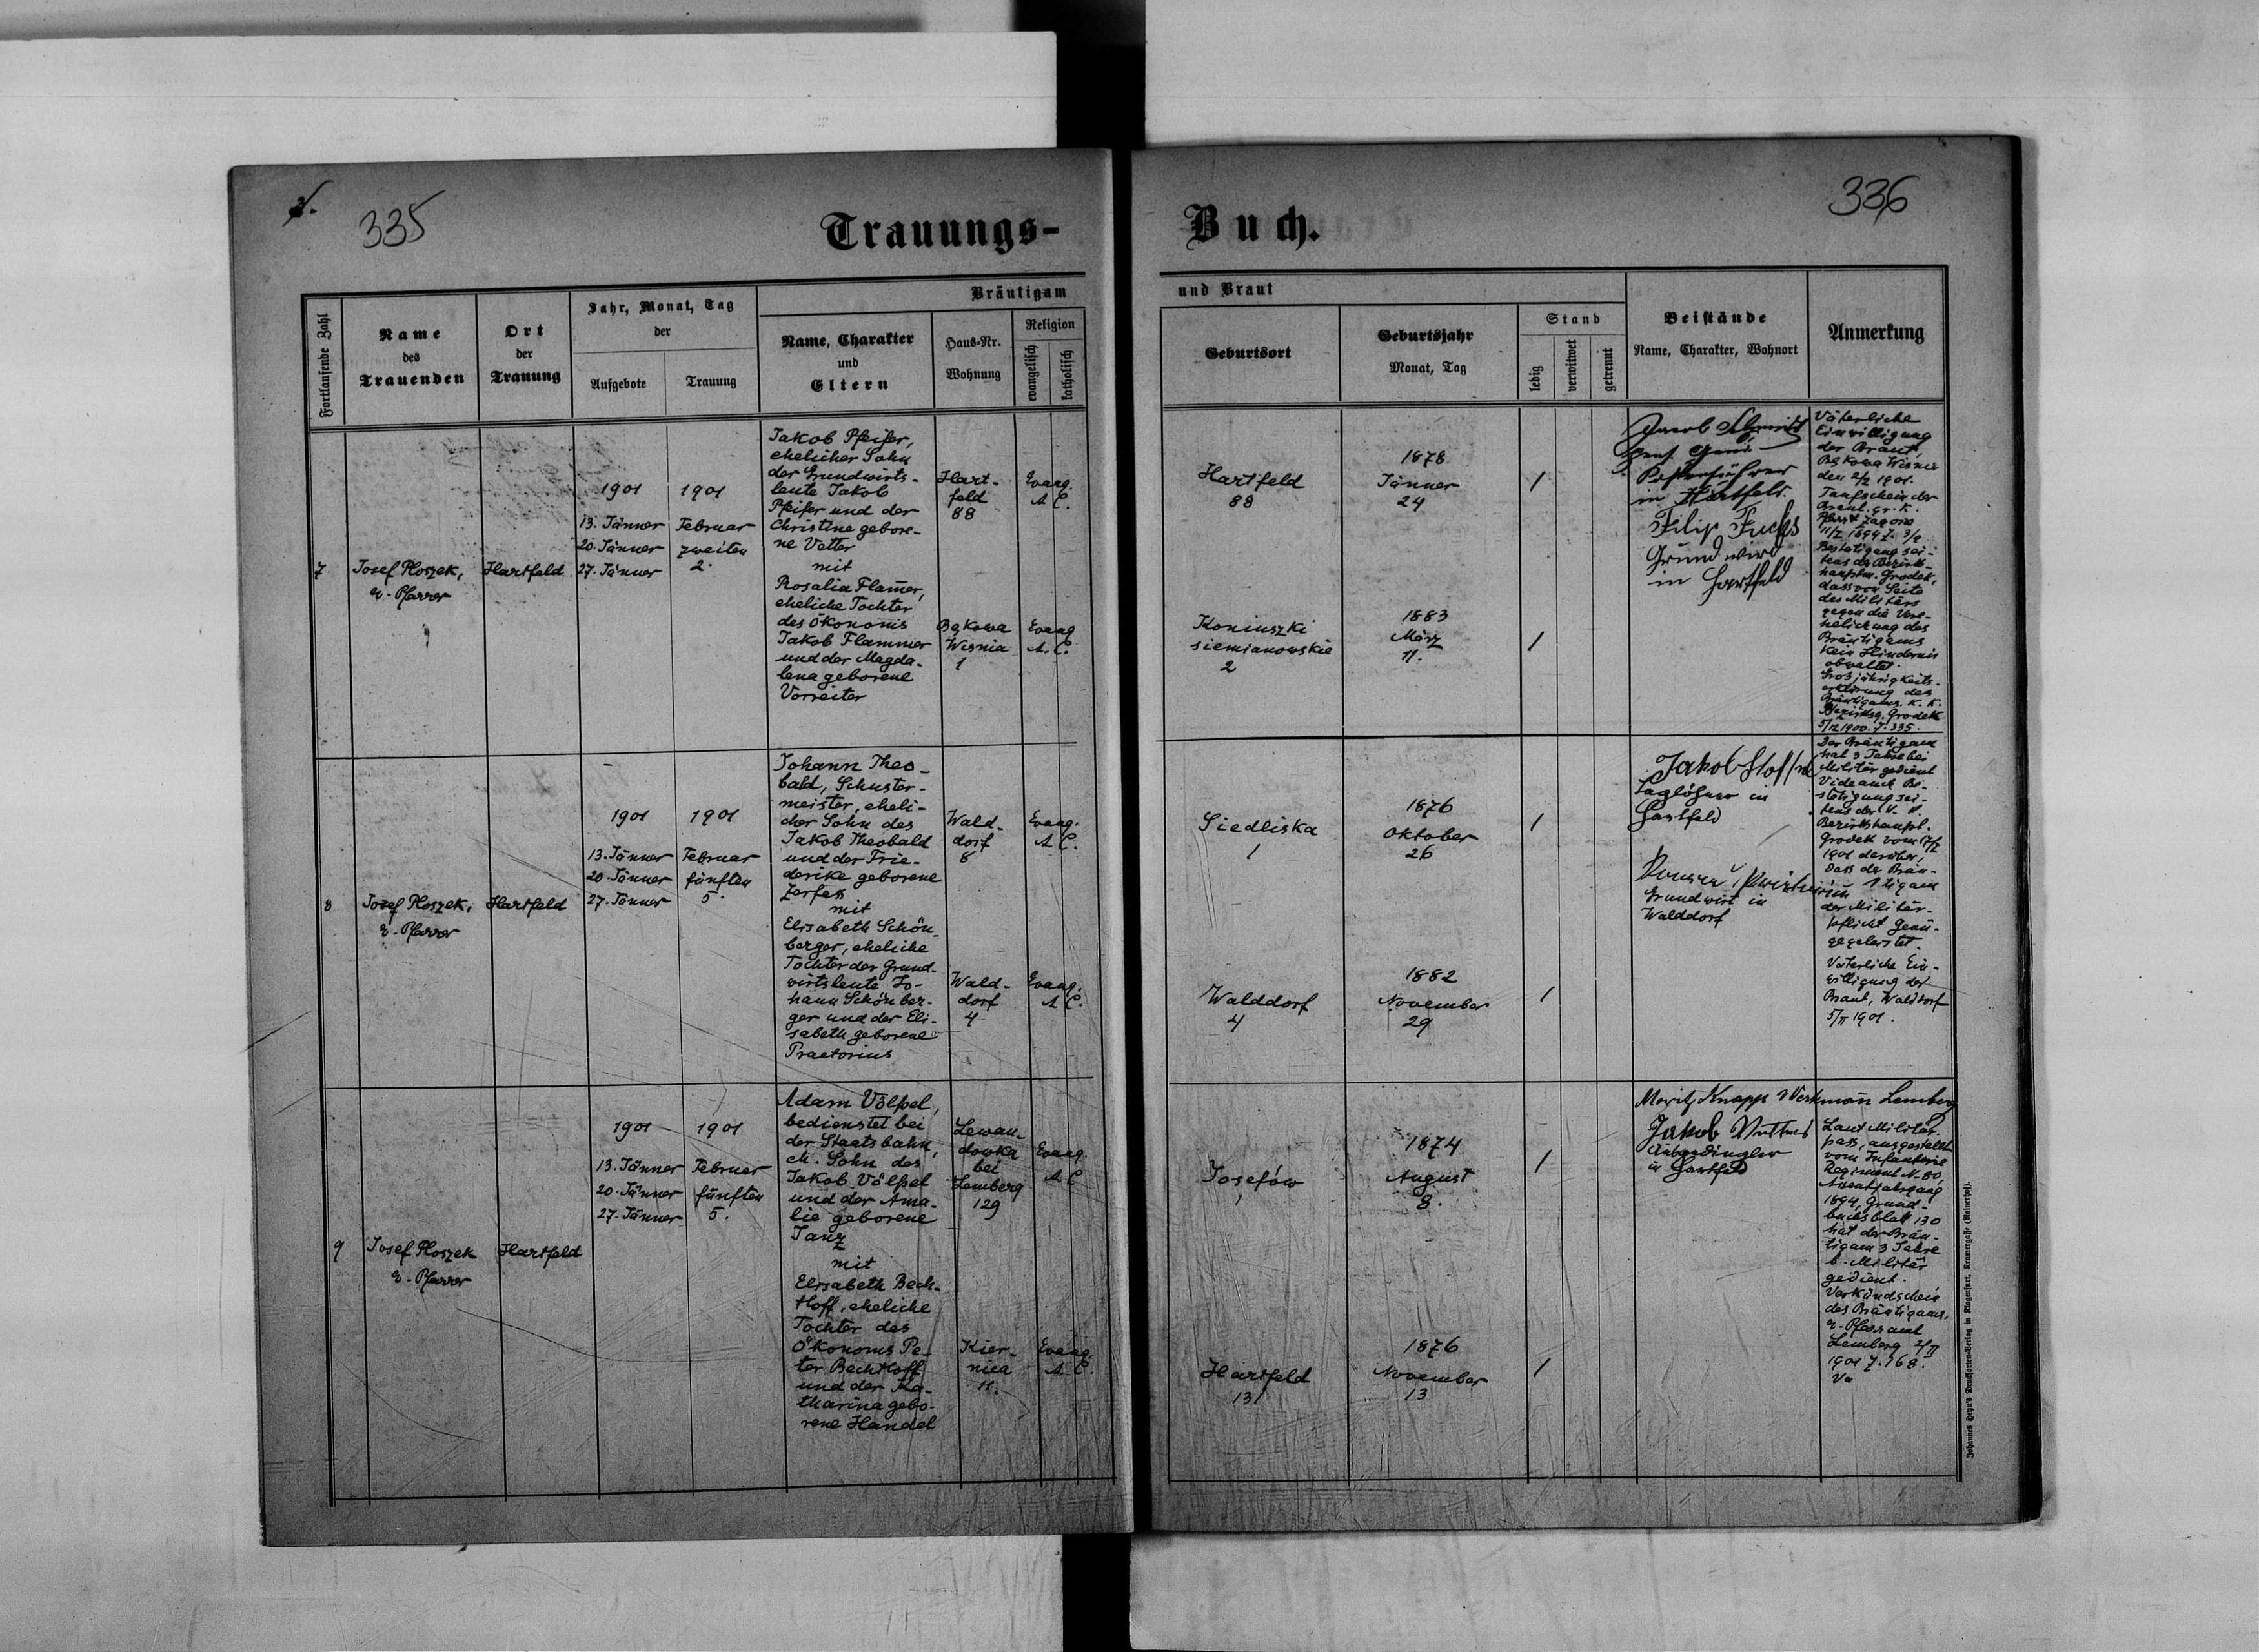 335
336
Trauungs-
Buch.
Fortlaufende Zahl
Name
des
Trauenden
Ort
der
Trauung
Jahr, Monat, Tag
der
Aufgebote
Trauung
Bräutigam
Name, Charakter
und
Eltern
Haus-Nr.
Wohnung
Religion
evangelisch
katholisch
und Braut
Geburtsort
Geburtsjahr
Monat, Tag
Stand
ledig
verwitwet
getrennt
Beistände
Name, Charakter, Wohnort
Anmerkung
7
Josef Ploszek,
e. Pfarrer
Hartfeld
1901
13. Jänner
20. Jänner
27. Jänner
1901
Februar
zweiten
2.
Jakob Pfeifer,
ehelicher Sohn
der Grundwirts-
leute Jakob
Pfeifer und der
Christine gebore-
ne Vetter
mit
Rosalia Flam̄er,
eheliche Tochter
des Ökonomis
Jakob Flammer
und der Magda-
lena geborene
Vorreiter
Hart-
feld
88
Evang.
A. C.
Bąkowa
Wisnia
1
Evang
A. C.
Hartfeld
88
1878
Jänner
24
/
Koniuszki
siemianowskie
2
1883
März
11.
/
Jacob
in Hartfeld.
Filip Fuchs
Grundwird
in Hartfeld
Väterliche
Einwilligung
der Braut,
Bąkowa Wisnia
den 2/2 1901.
Taufschein der
Braut gr. k.
1899
Bestätigung sei-
tens der Bezirks-
hauptm. Grodek,
dass von Seite
des Militärs
gegen die Vere-
helichung des
Bräutigams
kein Hindernis
obwaltet.
Großjährigkeits-
erklärung des
Bräutigams. K. K.
Bezirksg. Grodek
1900. J. 335.
8
Josef Ploszek,
e. Pfarrer
Hartfeld
1901
13. Jänner
20. Jänner
27. Jänner
1901
Februar
fünften
5.
Johann Theo-
bald, Schuster-
meister, eheli-
cher Sohn des
Jakob Theobald
und der Frie-
derike geborene
Zerfass
mit
Elisabeth Schön-
berger, eheliche
Tochter der Grund-
wirtsleute Jo-
hann Schönber-
ger und der Eli-
sabeth geborene
Praetorius
Wald-
dorf
8
Evang.
A. C.
Wald-
dorf
4
Evang.
A. C.
Siedliska
1
1876
Oktober
26
/
Walddorf
4
1882
November
29
/
Jakob
Taglöhner in
Hartfeld
Grundwirt in
Walddorf
Der Bräutigam
hat 3 Jahre bei
Militär gedient
Vide auch Be-
stätigung sei-
tens der k. k.
Bezirkshaupt.
Grodek vom
1901 darüber,
dass der Bräu-
tigam
der Militär-
pflicht Genü-
ge geleistet.
Väterliche Ein-
willigung der
Braut, Walddorf
5/II 1901.
9
Josef Ploszek
e. Pfarrer
Hartfeld
1901
13. Jänner
20. Jänner
27. Jänner
1901
Februar
fünften
5.
Adam Völpel,
bedienstet bei
der Staatsbahn,
eh. Sohn des
Jakob Völpel
und der Ama-
lie geborene
Janz
mit
Elisabeth Bech-
tloff, eheliche
Tochter des
Ökonoms Pe-
ter Bechtloff
und der Ka-
tharina gebo-
rene Handel
Lewan-
dowka
bei
Lemberg
129
Evang.
A C
Kier-
nica
11.
Evang.
A. C.
Josefów
1874
August
8.
/
Hartfeld
131
1876
November
13
/
Moritz Knapp Werkmañ Lemberg
Jakob
in Hartfeld
Laut Militär-
pass, ausgestellt
vom Infanterie
Regiment N. 80,
Assentjahrgang
1894, Grund-
buchsblatt 130
hat der Bräu-
tigam 3 Jahre
b. Militär
gedient.
Verkündschein
des Bräutigams,
e. Pfarramt
Lemberg 2/II
1901 J. 168.
Johannes Heyn's Drucksorten-Verlag in Klagenfurt, Kramergasse (Rainerhof).